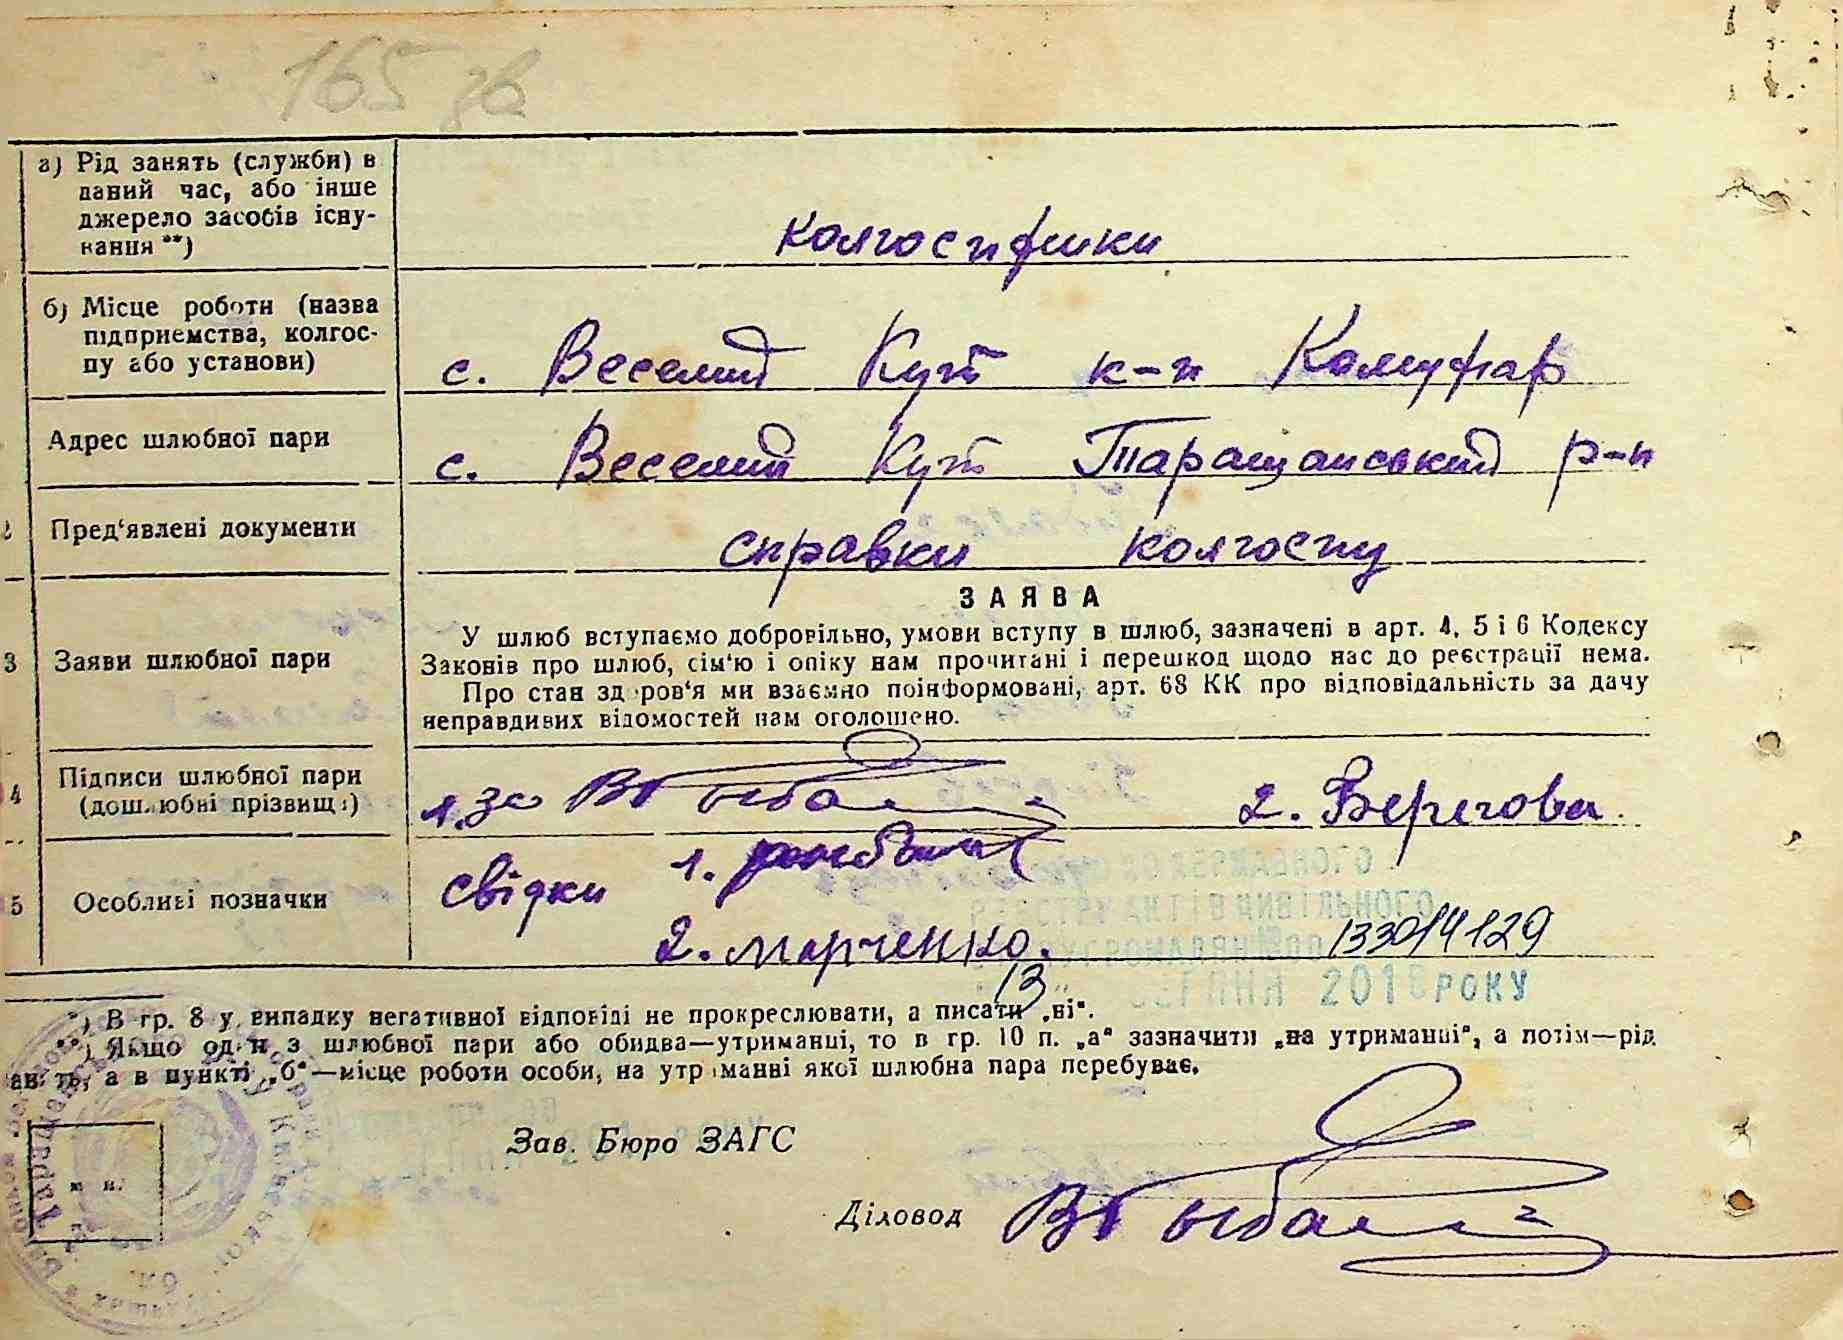 165 зв
а) Рід занять (служби) в
даний час, або інше
джерело засобів існу-
вання **)
колгоспники
б) Місце роботи (назва
підприємства, колгос-
пу або установи)
с. Веселий Кут к-п
Адрес шлюбної пари
с. Веселий Кут Таращанський р-н
Пред‘явлені документи
справки колгоспу
ЗАЯВА
3 Заяви шлюбної пари
У шлюб вступаємо добровільно, умови вступу в шлюб, зазначені в арт. 4, 5 і 6 Кодексу
Законів про шлюб, сім‘ю і опіку нам прочитані і перешкод щодо нас до реєстрації нема.
Про стан здоров‘я ми взаємно поінформовані, арт. 68 КК про відповідальність за дачу
неправдивих відомостей нам оголошено.
4 Підписи шлюбної пари
(дошлюбні прізвища)
1. за 2. Берегова
5 Особливі позначки
свідки 1.
2. Марченко.
ДЕРЖАВНОГО
РЕЄСТРУ АКТІВ ЦИВІЛЬНОГО
СТАНУ ГРОМАДЯН ПО 133014129
13 СЕРПНЯ 2018 РОКУ
*) В гр. 8 у випадку негативної відповіді не прокреслювати, а писати „ні“.
**) Якщо один з шлюбної пари або обидва—утриманці, то в гр. 10 п. „а“ зазначити „на утриманні“, а потім—рід
занять, а в пункті „б“—місце роботи особи, на утриманні якої шлюбна пара перебуває.
м. п.
Зав. Бюро ЗАГС
Діловод